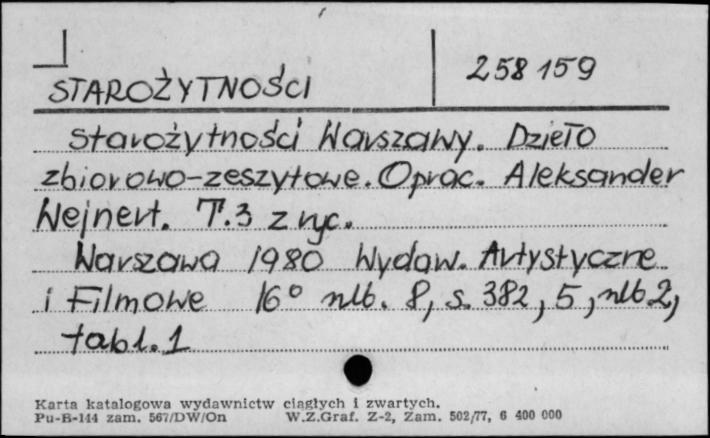 258159
STAROŻYTNOŚCI
Starożytności Warszawy. Dzieło
zbiorowo-zeszytowe. Oprac. Aleksander
Wejnert. T.3 z ryc.
Warszawa 1980 Wydaw. Artystyczne
i Filmowe 16° nlb. 8, s. 382, 5, nlb 2,
tabl. 1
Karta katalogowa wydawnictw ciągłych i zwartych.
Pu-B-144 zam. 567/DW/On W.Z.Graf. Z-2, Zam. 502/77, 6 400 000